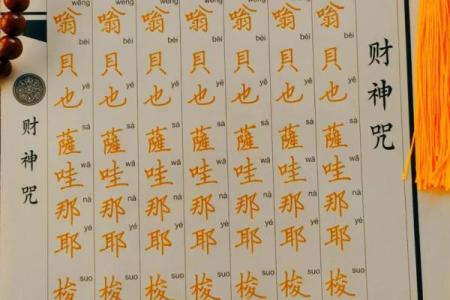 财神咒
wēng 嗡 bèi 貝 yě 也 sà 薩 wā 哇 nà 那 yé 耶 suo 梭
wēng 嗡 bèi 貝 yě 也 sà 薩 wā 哇 nà 那 yé 耶 suo 梭
wēng 嗡 bèi 貝 yě 也 sà 薩 wā 哇 nà 那 yé 耶 suo 梭
wēng 嗡 bèi 貝 yě 也 sà 薩 wā 哇 nà 那 yé 耶 suo 梭
wēng 嗡 bèi 貝 yě 也 sà 薩 wā 哇 nà 那 yé 耶 suo 梭
wēng 嗡 bèi 貝 yě 也 sà 薩 wā 哇 nà 那 yé 耶 suo 梭
wēng 嗡 bèi 貝 yě 也 sà 薩 wā 哇 nà 那 yé 耶 suo 梭
财神咒